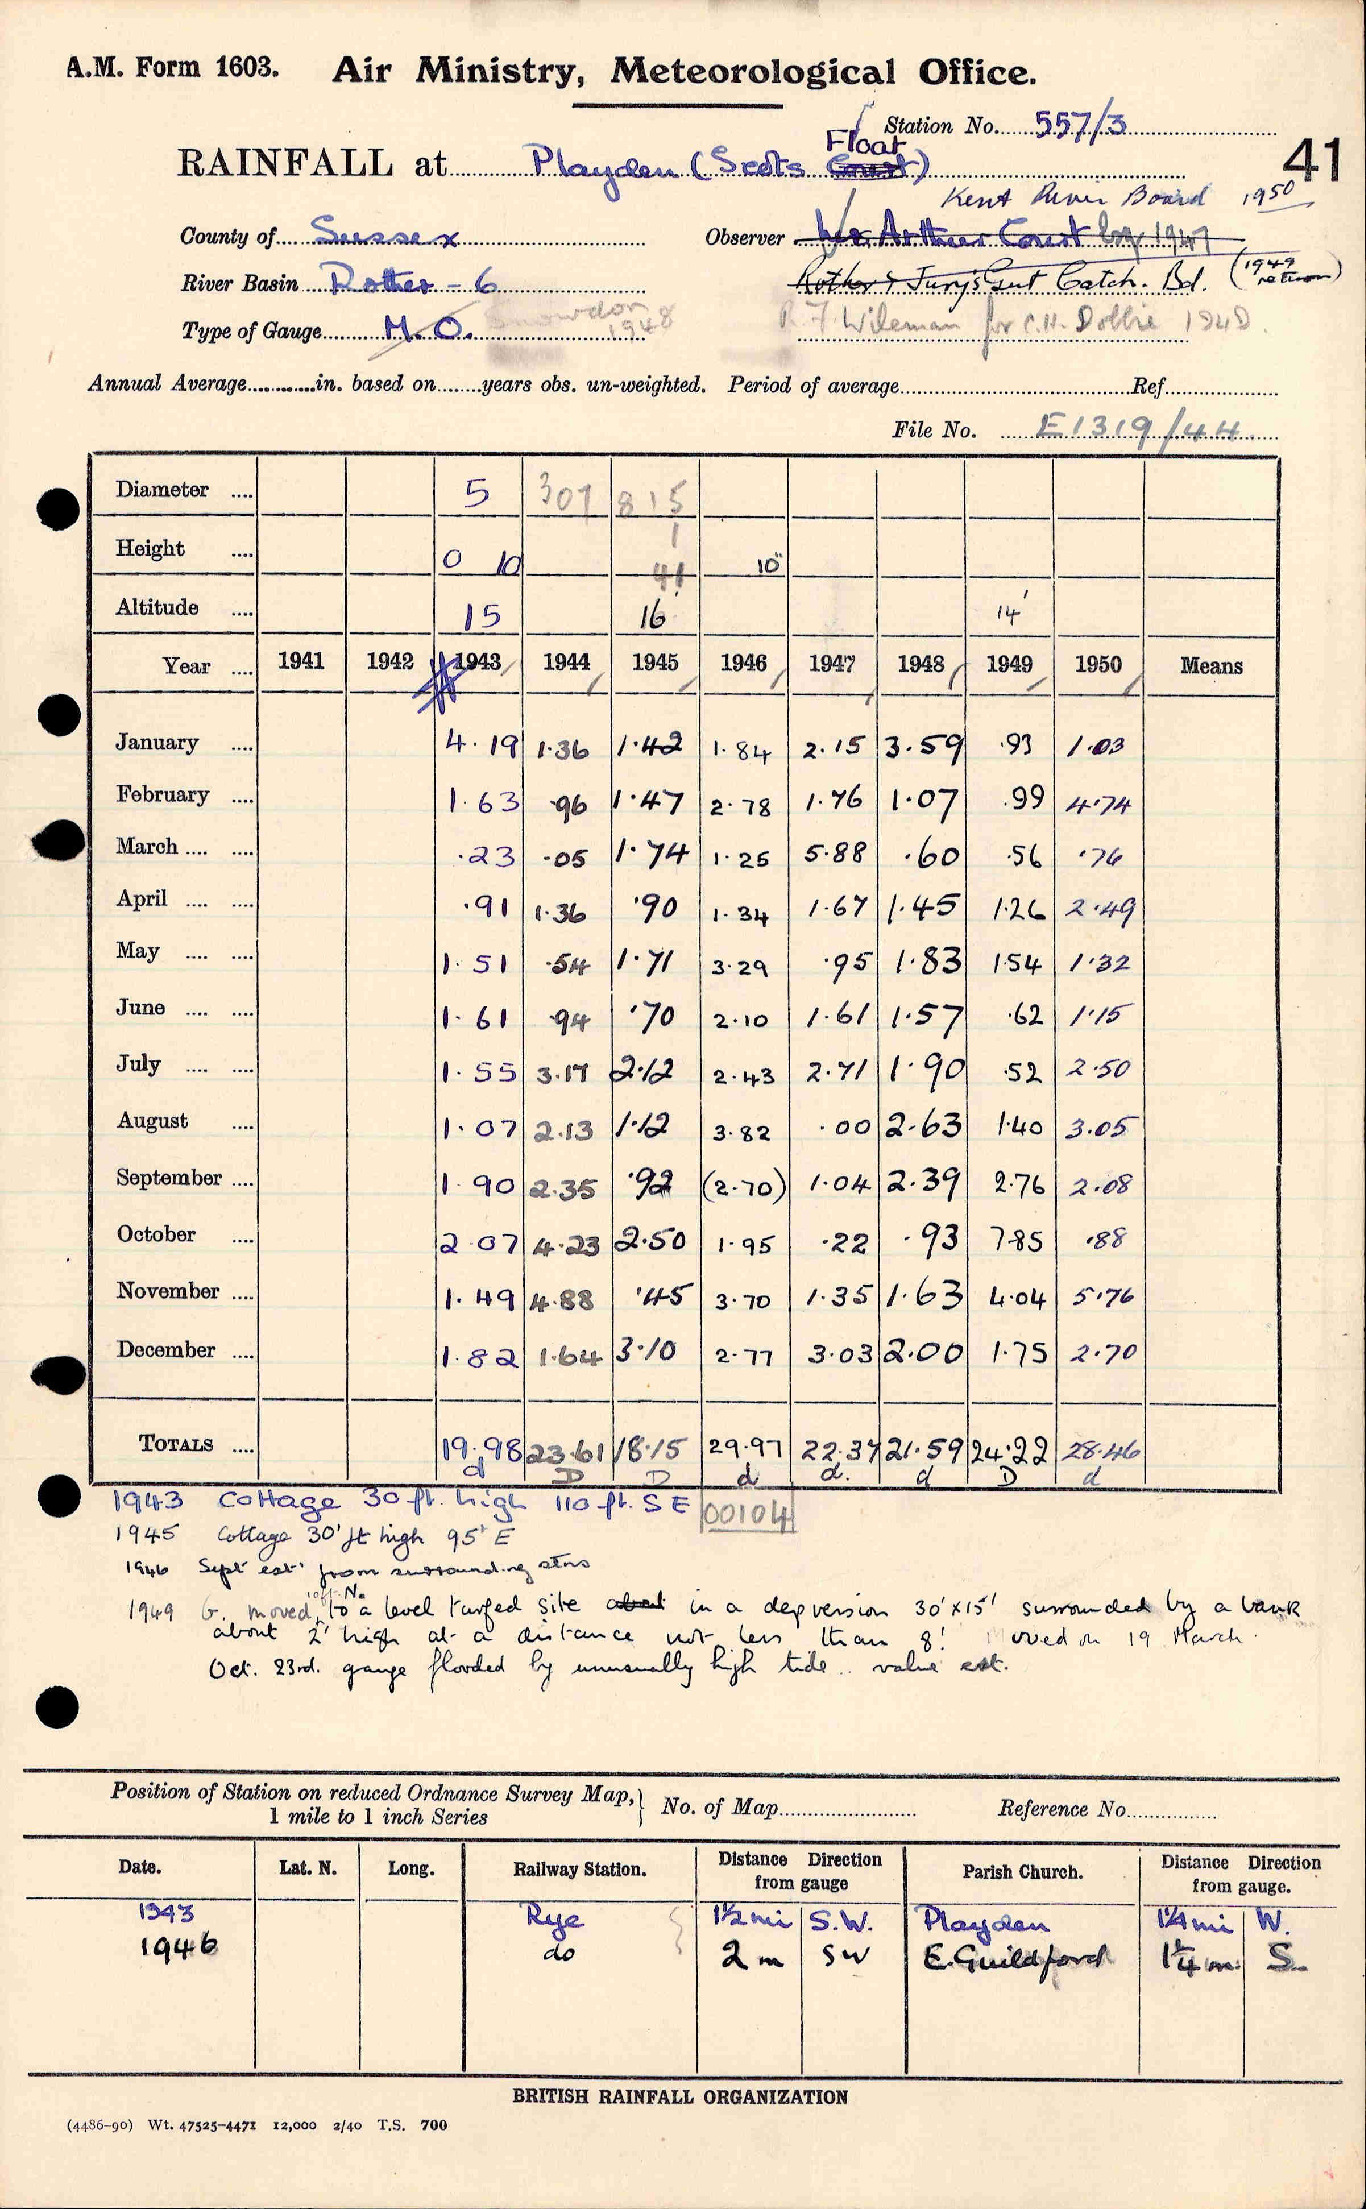 A.M. Form 1603. Air Ministry, Meteorological Office.
Station No. 557/3
41
RAINFALL at Playden (Scots Float Court)
Kent River Board 1950
County of Sussex Observer Arthur Court by 1947
River Basin Rother - 6 Rother & Jury's Gut Catch. Bd. (1949 return)
Type of Gauge M.O. Snowdon 1948 R. F. Wileman for C.H. Dobbie 1948.
Annual Average in. based on years obs. un-weighted. Period of average Ref
File No. E1319/44
Diameter 5 307 815
Height 0 10 1 10"
Altitude 15 41 16 14'
Year 1941 1942 1943 1944 1945 1946 1947 1948 1949 1950 Means
January 4.19 1.36 1.42 1.84 2.15 3.59 .93 1.03
February 1.63 .96 1.47 2.78 1.76 1.07 .99 4.74
March .23 .05 1.74 1.25 5.88 .60 .56 .76
April .91 1.36 .90 1.34 1.67 1.45 1.26 2.49
May 1.51 .54 1.71 3.29 .95 1.83 1.54 1.32
June 1.61 .94 .70 2.10 1.61 1.57 .62 1.15
July 1.55 3.17 2.12 2.43 2.71 1.90 .52 2.50
August 1.07 2.13 1.12 3.82 .00 2.63 1.40 3.05
September 1.90 2.35 .92 (2.70) 1.04 2.39 2.76 2.08
October 2.07 4.23 2.50 1.95 .22 .93 7.85 .88
November 1.49 4.88 .45 3.70 1.35 1.63 4.04 5.76
December 1.82 1.64 3.10 2.77 3.03 2.00 1.75 2.70
TOTALS 19.98 23.61 18.15 29.97 22.37 21.59 24.22 28.46
d D D d d. d D d
1943 Cottage 30 ft. high 110 ft. S E 00104
1945 Cottage 30' ft high 95' E
1946 Sept est from surrounding stns
1949 G. moved 10ft. N. to a level turfed site about in a depression 30'x15' surrounded by a bank
about 2' high at a distance not less than 8'. Moved on 19 March.
Oct. 23rd. gauge flooded by unusually high tide.. value est.
Position of Station on reduced Ordnance Survey Map, 1 mile to 1 inch Series } No. of Map Reference No.
Date. Lat. N. Long. Railway Station. Distance Direction from gauge Parish Church. Distance Direction from gauge.
1943 Rye 1½ mi S.W. Playden 1¼ mi W.
1946 do 2 m SW E. Guildford 1¼ m. S.
BRITISH RAINFALL ORGANIZATION
(4486-90) Wt. 47525-4471 12,000 2/40 T.S. 700